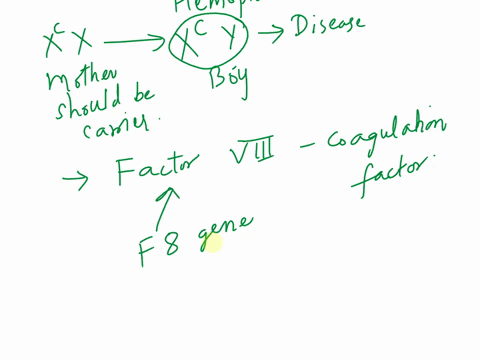 X^C X → X^C Y → Disease
Mother should be carrier.
Boy
→ Factor VIII - coagulation factor.
F 8 gene